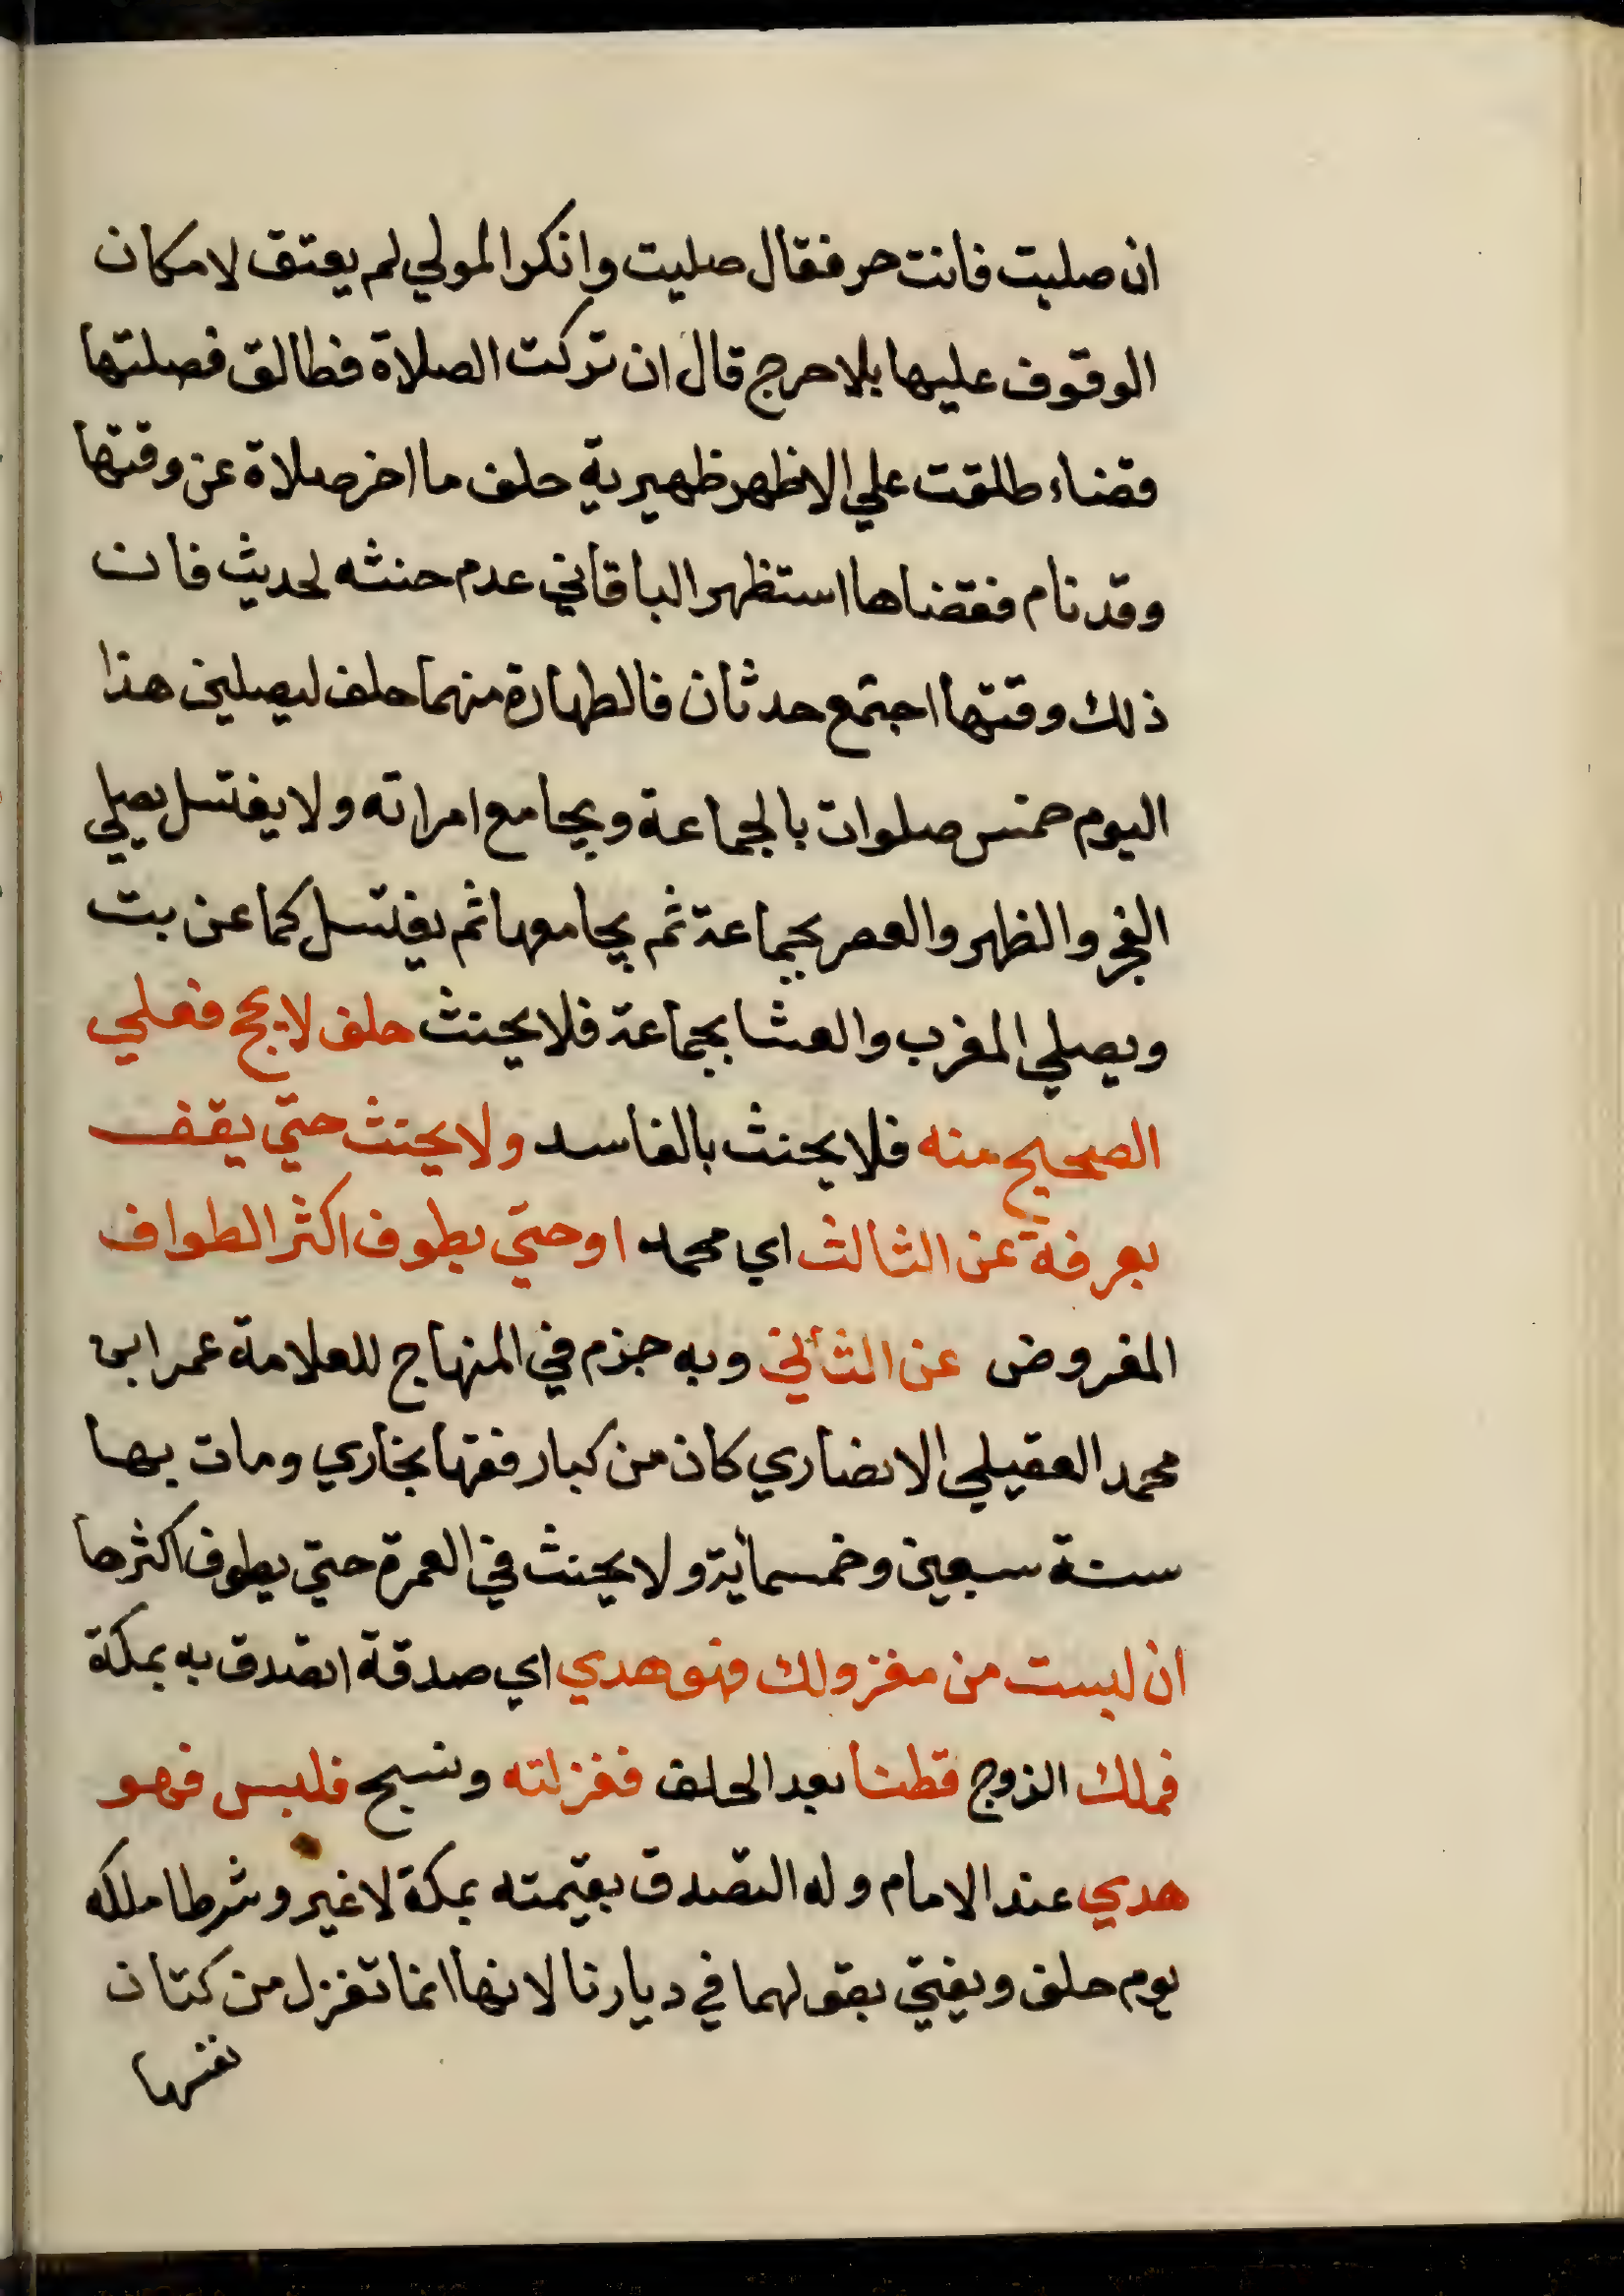 ان صليت فانت حر فقال صليت وانكر المولي لم يعتق لامكان
الوقوف عليها بلا حرج قال ان تركت الصلاة فطالق فصلتها
قضاء طلقت علي الاظهر ظهيرية حلف ما اخر صلاة عن وقتها
وقد نام فقضاها استظهر الباقاني عدم حنثه لحديث فان
ذلك وقتها اجتمع حدثان فالطهارة منهما حلف ليصلين هذا
اليوم خمس صلوات بالجماعة ويجامع امراته ولا يغتسل يصلي
الفجر والظهر والعصر بجماعة ثم يجامعها ثم يغتسل كما عن بت
ويصلي المغرب والعشا بجماعة فلا يحنث حلف لا يحج فعلي
الصحيح منه فلا يحنث بالفاسد ولا يحنث حتي يقف
بعرفة عن الثالث اي محمد او حتي يطوف اكثر الطواف
المفروض عن الثاني وبه جزم في المنهاج للعلامة عمر ابن
محمد العقيلي الانصاري كان من كبار فقها بخاري ومات بها
سنة سبعين وخمسماية ولا يحنث في العمرة حتي يطوف اكثرها
ان لبست من مغزولك فهو هدي اي صدقة اتصدق به بمكة
فملك الزوج قطنا بعد الحلف فغزلته ونسج فلبس فهو
هدي عند الامام وله التصدق بقيمته بمكة لا غير وشرطا ملكه
يوم حلف ويفتي بقولهما في ديارنا لانها انما تغزل من كتان
نفسها